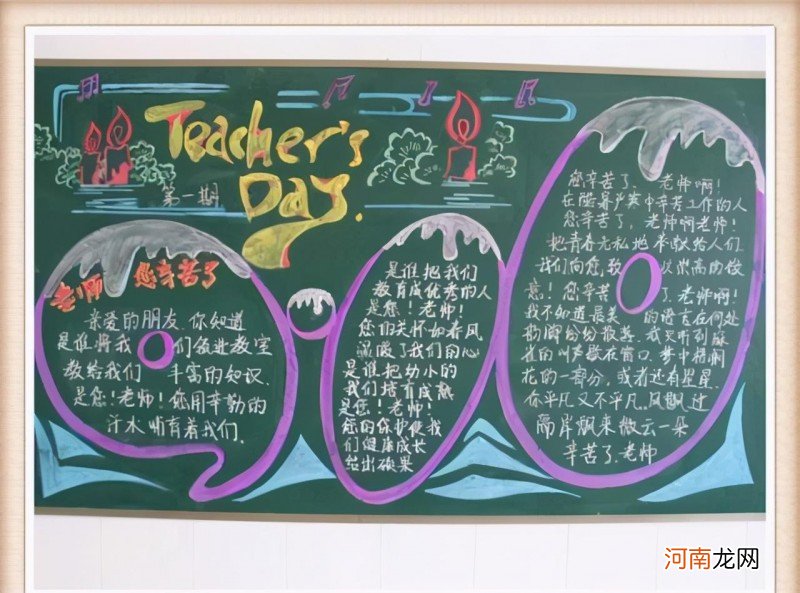 Teacher's
Day.
第一期
老师 您辛苦了
亲爱的朋友.你知道
是谁将我们领进教室
教给我们丰富的知识.
是您!老师!您用辛勤的
汗水哺育着我们.
是谁把我们
教育成优秀的人
是您!老师!
您的关怀如春风
温暖了我们的心
是谁把幼小的
我们培育成熟
是您!老师!
您的保护使我
们健康成长
给出硕果
您辛苦了、老师啊!
在酷暑严寒中辛苦工作的人
您辛苦了,老师啊老师!
把青春无私地奉献给人们
我们向您致以崇高的敬
意!您辛苦了.老师啊!
我不知道最美的语言在何处
纷纷散落.我只听到麻
雀的叫声歇在窗口.梦中梧桐
花的一部分,或者还有星星.
你平凡又不平凡.风飘过
隔岸飘来微云一朵
辛苦了.老师
河南龙网